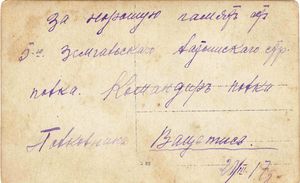 За хорошую память от
5-го Земгальского Латышского стр.
полка. Командиръ полка
Полковникъ Вацетисъ.